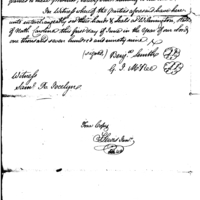 In Witness whereof the parties aforesaid have here-
unto interchangeably set their hands & seals at Wilmington, State
of North Carolina this first day of June in the Year of our Lord
one thousand seven hundred and ninety nine
(signed) Benj. Smith
G. J. McRee
Witness
Sam. R. Jocelyn
True Copy